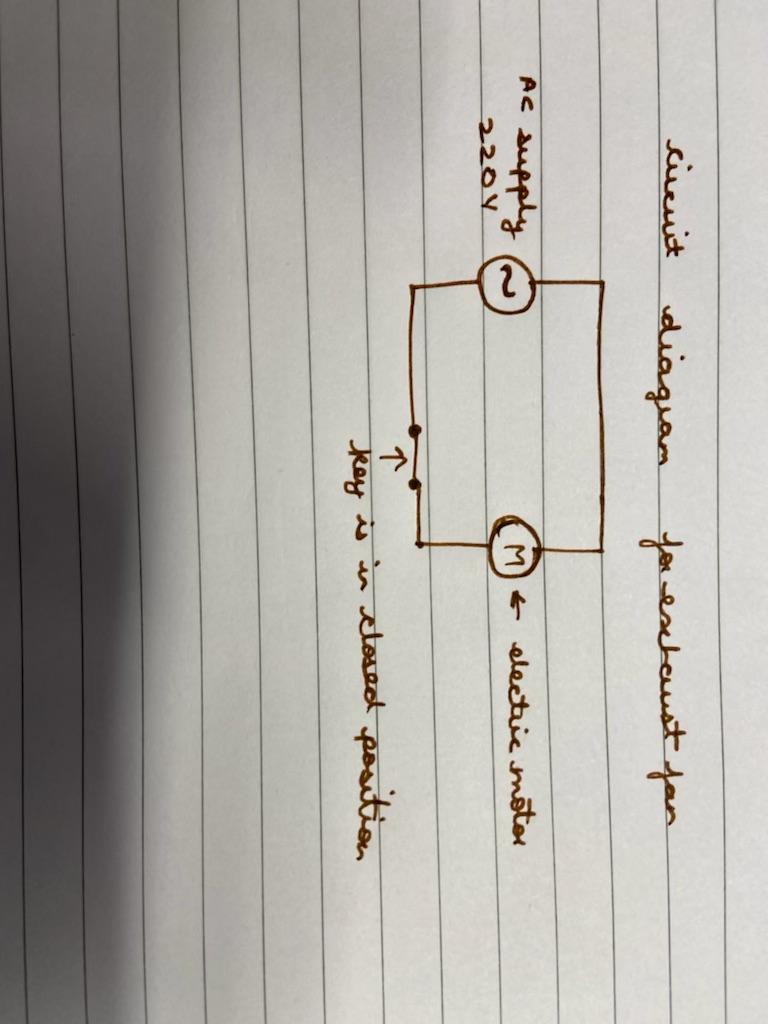 circuit diagram for exhaust fan
AC supply
220V
~
M
← electric motor
↑
key is in closed position